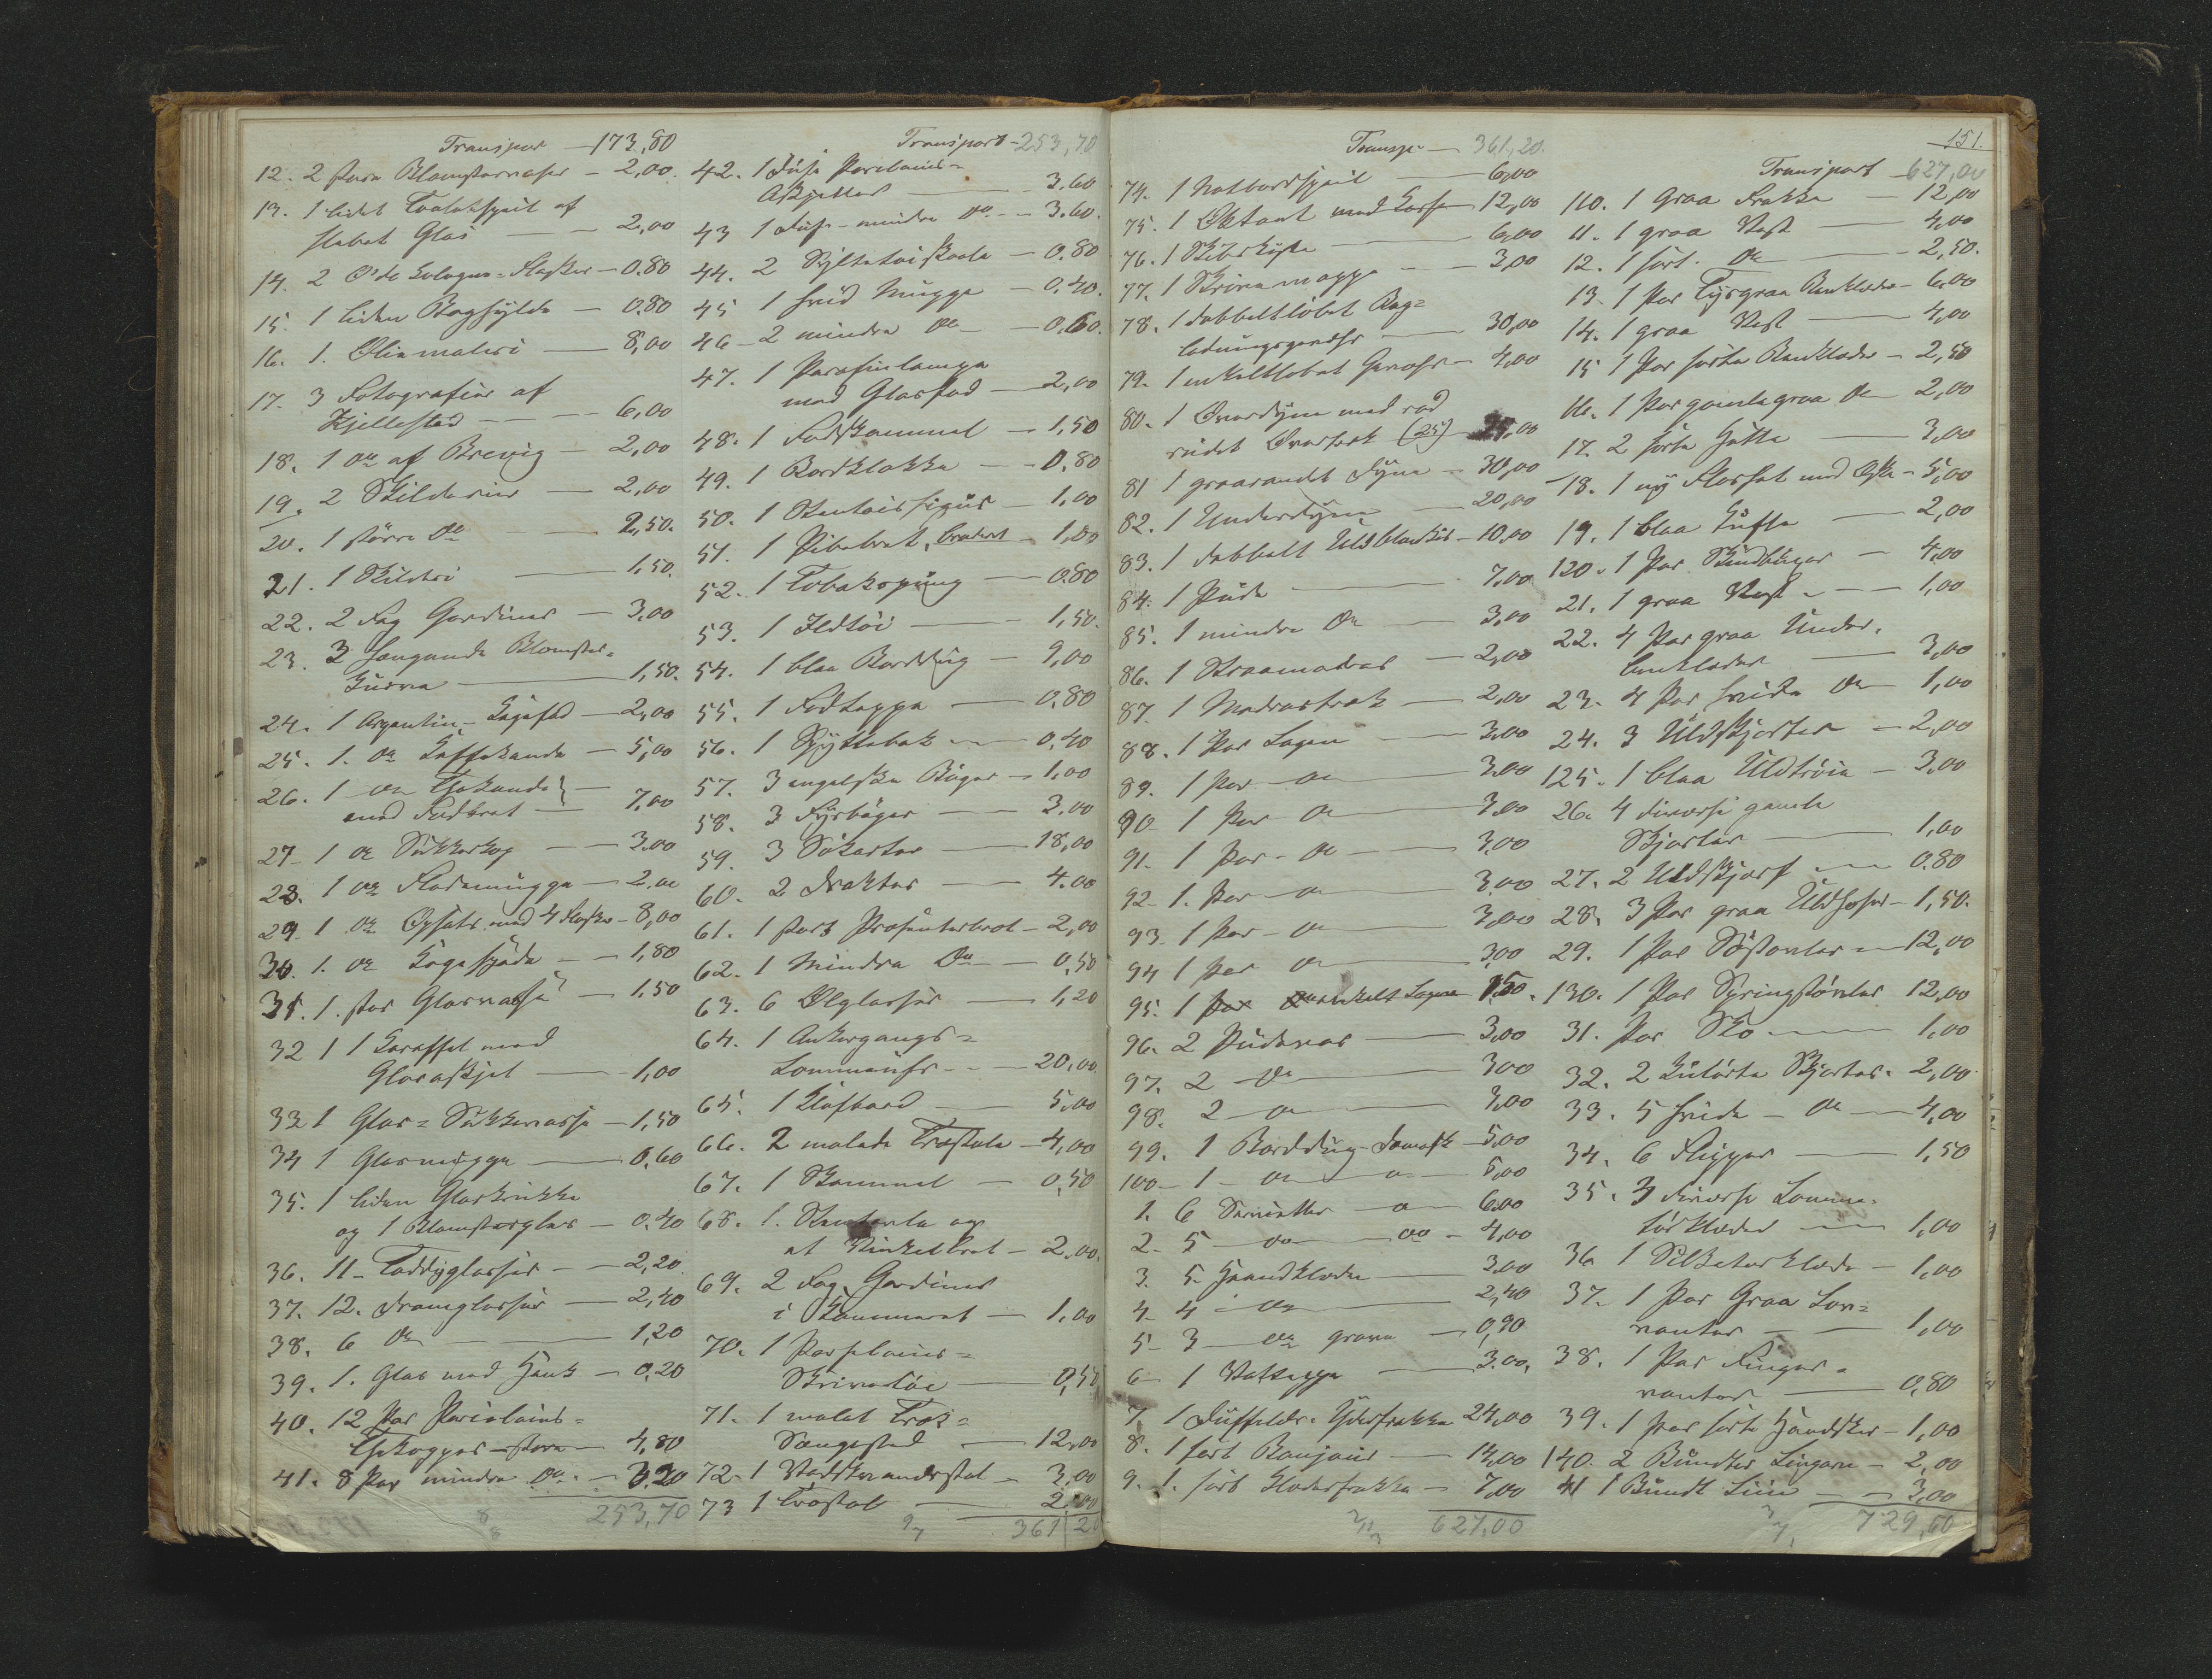 Transport — 173,80
12. 2 store Blomstervaser — 2,00.
13. 1 lidet Toiletspeil af
slebet Glas — 2,00
14. 2 O'de Cologne-Flasker — 0.80
15. 1 liden Boghylde — 0.80
16. 1. Oliemaleri — 8,00
17. 3 Fotografier af
Kjellestad — 6,00
18. 1 do af Brevig — 2,00
19. 2 Skilderier — 2,00
20. 1 større do — 2,50.
21. 1 Skilderi — 1,50.
22. 2 Fag Gardiner — 3,00
23. 2 hængende Blomster-
kurve — 1,50.
24. 1 Argentin-Kagefad — 2,00
25. 1. do Kaffekande — 5,00
26. 1 do Thekande
med Fadbret — 7,00
27. 1 do Sukkerkop — 3.00
28. 1 do Flødemugge — 2.00
29. 1 do Opsats med 4 Flasker — 8,00
30. 1. do Kagespade — 1,80
31. 1. stor Glasvase — 1,50
32 1 Karaffel med
Glasaskjet — 1,00
33 1 Glas-Sukkervase — 1,50
34 1 Glasmugge — 0,60
35. 1 liden Glaskrukke
og 1 Blomsterglas — 0.40
36. 11 Toddyglasser — 2,20
37. 12. Dramglasser — 2,40
38. 6 do — 1,20
39. 1. Glas med Hank — 0,20
40. 12 Par Porcelains-
Thekopper — store — 4,80
41. 8 Par mindre do. — 3.20
253,70
Transport — 253,70
42. 1 Dusin Porcelains-
Askjetter — 3.60
43 1 Dusin mindre do — 3.60.
44. 2 Syltetøiskaale — 0.80
45 1 hvid Mugge — 0.40.
46 2 mindre do — 0,60.
47. 1 Parafinlampe
med Glasfad — 2,00
48. 1 Fodskammel — 1,50
49. 1 Bordklokke — 0.80
50. 1 Stentøisfigur — 1,00
51. 1 Pibebret, broderet — 1,00
52. 1 Tobakspung — 0.80
53. 1 Ildtøi — 1,50.
54. 1 blaa Borddug — 9,00
55. 1 Fodteppe — 0,80
56. 1 Spyttebak — 0,40
57. 3 engelske Bøger — 1,00
58. 3 Fyrbøger — 3.00
59. 3 Søkarter — 18,00
60. 2 Drakter — 4.00
61. 1 stort Præsenterbret — 2,00
62. 1 Mindre do — 0,50
63. 6 Ølglasser — 1,20
64. 1 Ankergangs-
Lommeuhr — 20,00
65. 1 Kløfbord — 5,00
66. 2 malede Træstole — 4,00
67. 1 Skammel — 0,50
68. 1. Stentavle og
et Vinkelbret — 2,00.
69. 2 Fag Gardiner
i Kammeret — 1,00
70. 1 Porselains-
Skrivetøi — 0,50
71. 1 malet Træ-
Sængested — 12,00
72. 1 Vadskevandsstol — 3,00
73 1 Træstol — 2,00
361,20
Transp. — 361,20.
74. 1 Natbordspeil — 6,00
75. 1 Oktant med Kasse — 12,00
76. 1 Skibskiste — 6,00
77. 1 Skrivemappe — 3,00
78. 1 dobbeltløbet Bag-
ladningsgevær — 30,00
79. 1 enkeltløbet Gevær — 4,00
80. 1 Overdyne med rød
rudet Overtræk (25) — 25,00
81 1 graarandet Dyne — 30,00
82. 1 Underdyne — 20,00
83. 1 dobbelt Uldblanket — 10,00
84. 1 Pude — 7,00
85. 1 mindre do — 3,00
86. 1 Straamadras — 2,00
87. 1 Madrastræk — 2,00
88. 1 Par Lagen — 3.00
89. 1 Par do — 3.00
90 1 Par do — 3,00
91. 1 Par do — 3,00
92. 1. Par do — 3,00
93. 1 Par do — 3,00
94 1 Par do — 3,00
95. 1 enkelt Lagen — 1.50.
96. 2 Pudevar — 3,00
97. 2 do — 3,00
98. 2 do — 3,00
99. 1 Borddug-Damask — 5,00
100. 1 do do — 5,00
1. 6 Servietter do — 6.00
2. 5 do do — 4,00
3. 5 Haandklæder — 3.00
4. 4 do — 2,40
5. 3 do grove — 0,90
6 1 Vatteppe — 3.00.
7. 1 Duffelds-Yderfrakke 24,00
8. 1 sort Bonjour — 14,00
9. 1. sort Klædesfrakke — 7,00
627,00
151.
Transport — 627,00
110. 1 Graa Frakke — 12,00
11. 1 graa Vest — 4,00
12. 1 sort do — 2,50.
13. 1 Par lysgraa Benklæder — 6,00
14. 1 graa Vest — 4,00
15 1 Par sorte Benklæder — 2,50
16. 1 Par gamle graa do — 2,00
17. 2 sorte Hatte — 3,00
18. 1 ny Floshat med Æske — 5,00
19. 1 blaa Lufse — 2,00
120. 1 Par Skindbuxer — 4,00
21. 1 graa Vest — 1,00
22. 4 Par graa Under-
benklæder — 3,00
23. 4 Par hvide do — 1,00
24. 3 Uldskjorter — 2,00
125. 1 blaa Uldtrøie — 3,00
26. 4 diverse gamle
Skjorter — 1,00
27. 2 Uldskjerf — 0.80
28. 3 Par graa Uldhoser — 1,50.
29. 1 Par Søstøvler — 12,00
130. 1 Par Springstøvler 12,00
31. Par Sko — 1,00
32. 2 Kulørte Skjorter — 2,00
33. 5 hvide do — 4,00
34. 6 Flipper — 1,50
35. 3 diverse Lomme-
tørklæder — 1,00
36 1 Silketørklæde — 1,00
37. 1 Par Graa Lov-
vanter — 1,00
38. 1 Par Finger-
vanter — 0,80
39. 1 Par sorte Handsker — 1,00
140. 2 Bundter Lingarn — 2,00
41 1 Bundt Liin — 3,00
729,60